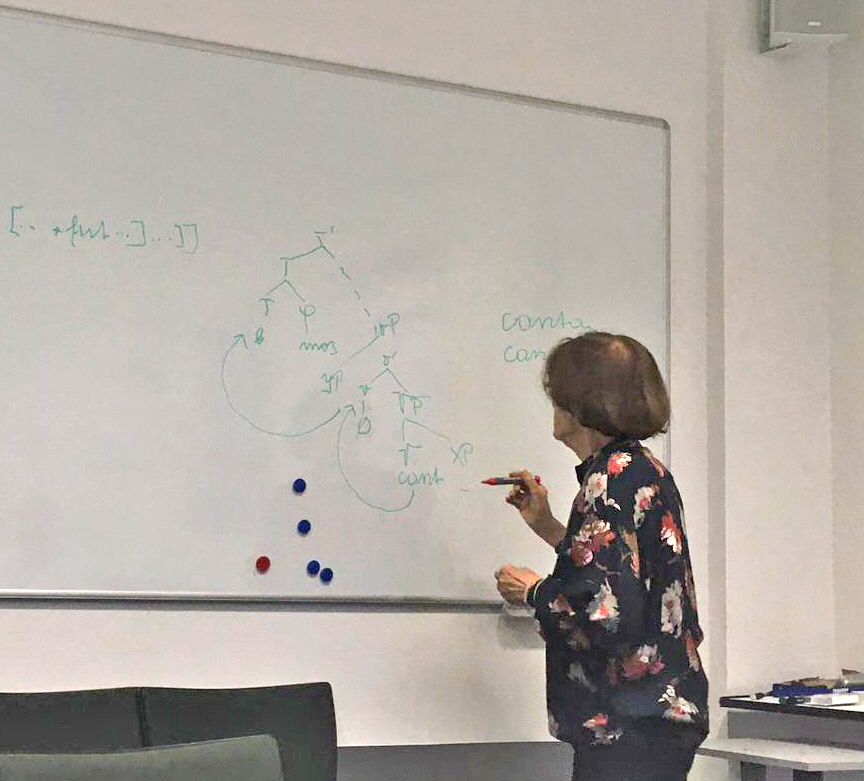 [.. +fut ...] ...]]
T'
T
T φ
mos
vP
YP v'
v √P
∅
√ XP
cant
canta
can